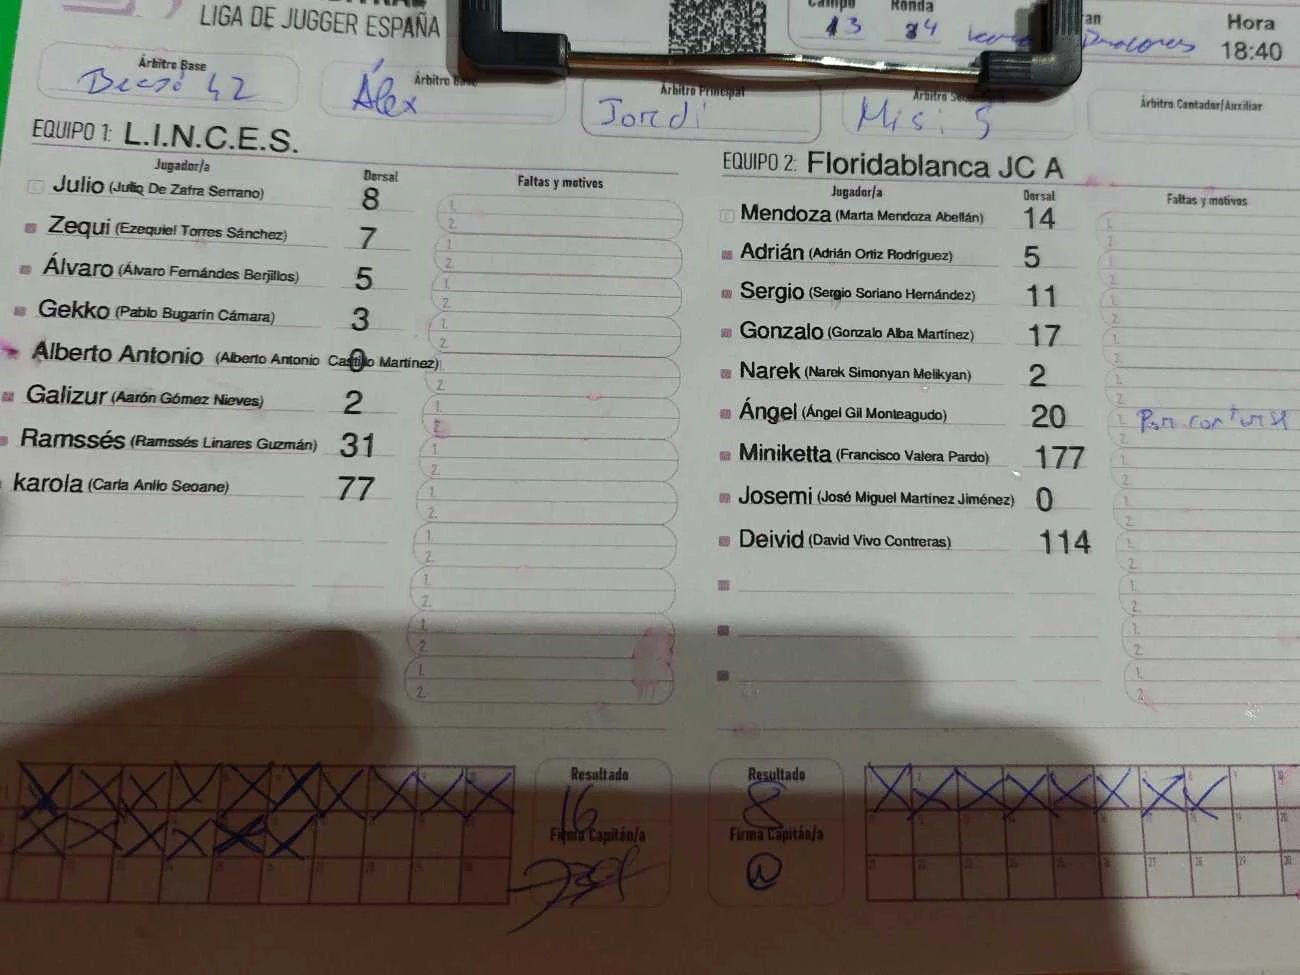 LIGA DE JUGGER ESPAÑA
Campo Ronda Hora
13 14 18:40
Árbitro Base Árbitro Base Árbitro Principal Árbitro Árbitro Contador/Auxiliar
Álex Jordi
EQUIPO 1: L.I.N.C.E.S.
Jugador/a Dorsal Faltas y motivos
Julio (Julio De Zafra Serrano) 8
Zequi (Ezequiel Torres Sánchez) 7
Álvaro (Álvaro Fernándes Berjillos) 5
Gekko (Pablo Bugarín Cámara) 3
Alberto Antonio (Alberto Antonio Castillo Martínez) 0
Galizur (Aarón Gómez Nieves) 2
Ramssés (Ramssés Linares Guzmán) 31
karola (Carla Anllo Seoane) 77
EQUIPO 2: Floridablanca JC A
Jugador/a Dorsal Faltas y motivos
Mendoza (Marta Mendoza Abellán) 14
Adrián (Adrián Ortiz Rodríguez) 5
Sergio (Sergio Soriano Hernández) 11
Gonzalo (Gonzalo Alba Martínez) 17
Narek (Narek Simonyan Melikyan) 2
Ángel (Ángel Gil Monteagudo) 20
Miniketta (Francisco Valera Pardo) 177
Josemi (José Miguel Martínez Jiménez) 0
Deivid (David Vivo Contreras) 114
Resultado
16
Firma Capitán/a
Resultado
8
Firma Capitán/a